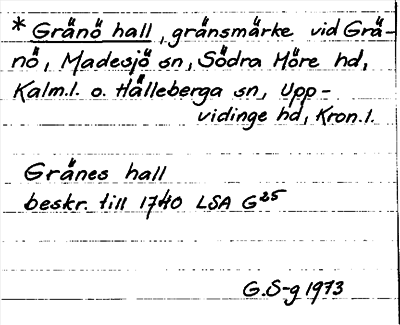 * Gränö hall, gränsmärke vid Grä-
nö, Madesjö sn, Södra Möre hd,
Kalm.l. o. Hälleberga sn, Upp-
vidinge hd, Kron.l.
Gränes hall
beskr. till 1740 LSA G25
G.S-g 1973